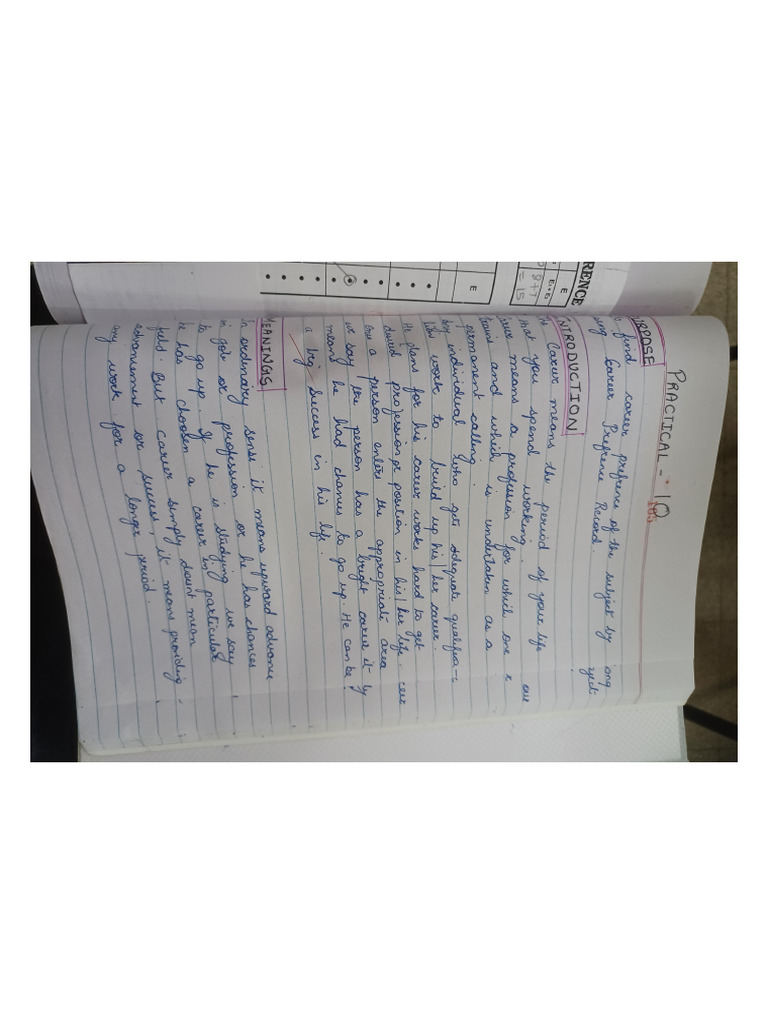 PRACTICAL - 10
PURPOSE
To find career prefrence of the subject by
using Career Prefrence Record.
INTRODUCTION
The Career means the period of your life
that you spend working.
Career means a profession for which one
trains and which is undertaken as a
permanent calling.
Any individual who gets adequate qualifica-
likes work to build up his/her career.
He plans for his career works hard to get
desired profession or position in his/her life.
Once a person enters the appropriate area
we say the person has a bright career it
means he had chances to go up. He can be
a big success in his life.
MEANINGS
In ordinary sense it means upward advance
in job or profession or he has chances
to go up. If he is studying we say
he has choosen a career in particular
field. But career simply doesnt mean
advancement or success, it means providing
any work for a longer period.
RENCE
E
E₁+E₂
8+7
=15
E